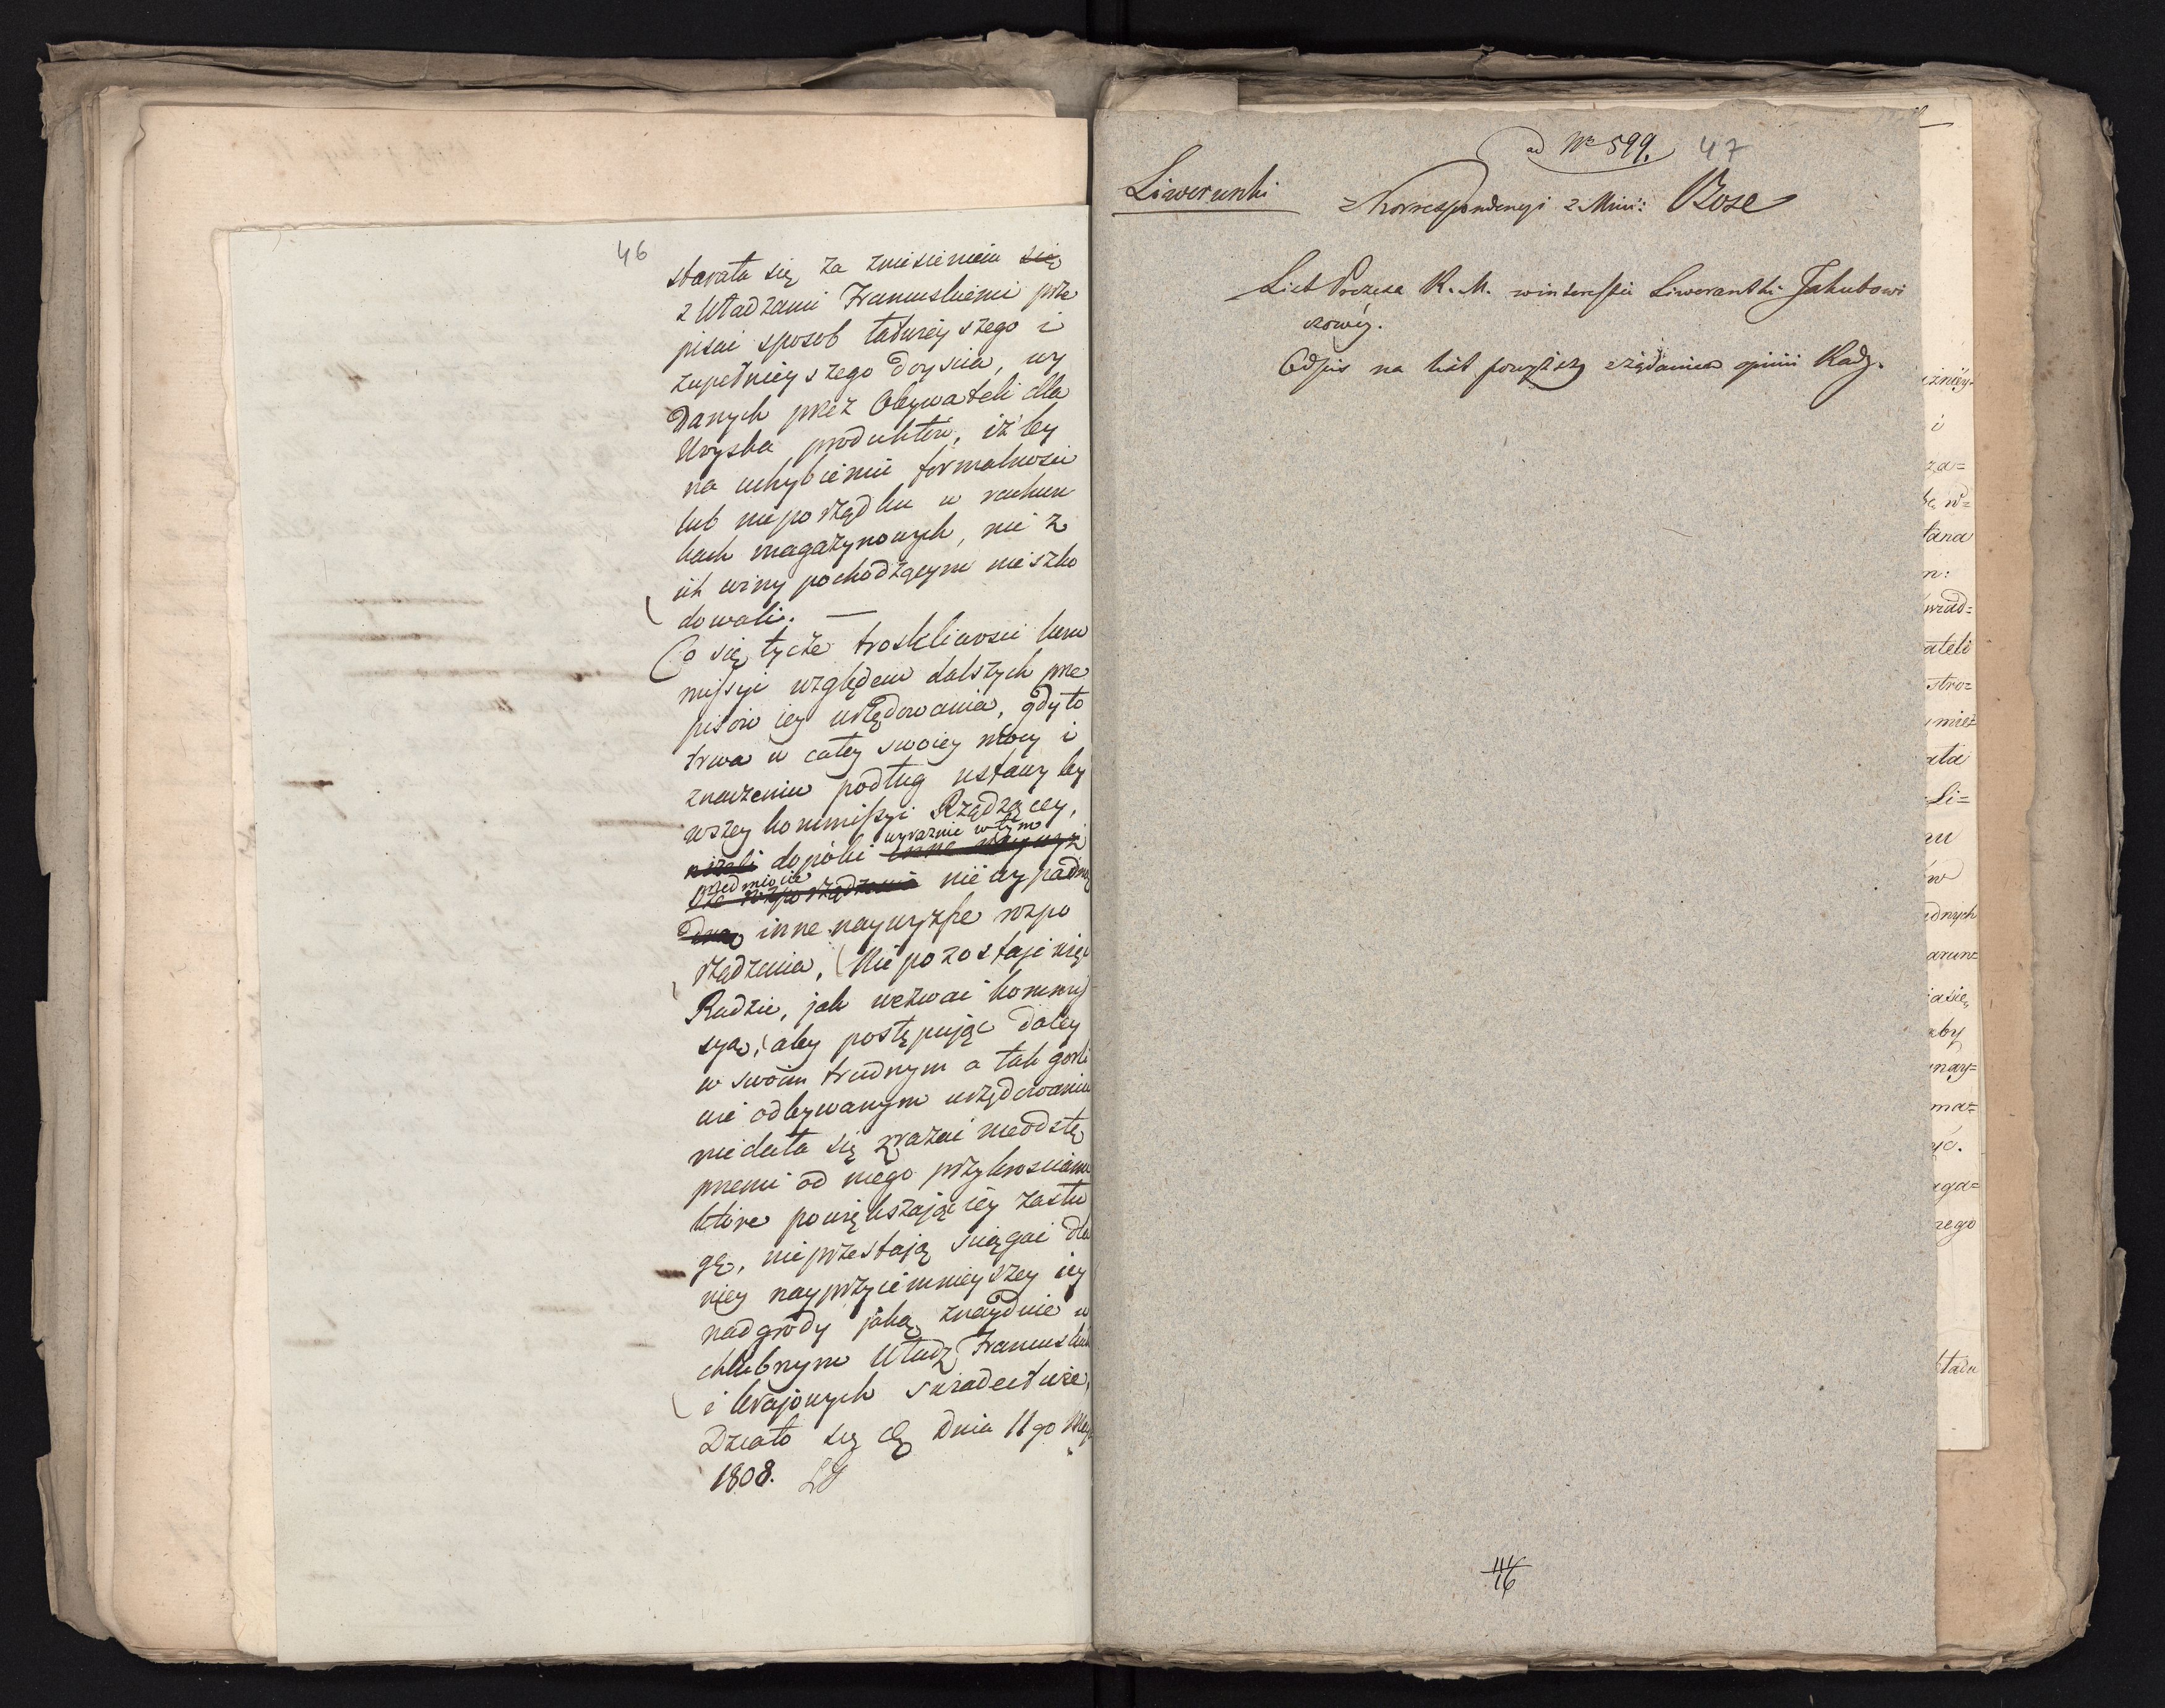 46
starała się za zniesieniem się
z Władzami Francuskiemi prze
pisać sposob łatwieyszego i
zupełnieyszego doyścia, wy
danych przez Obywateli dla
Woyska produktów, iżby
na uchybieniu formalności
lub nieporządku w rachun
kach magazynowych, nie z
ich winy pochodzącym nieszko
dowali. —
Co się tycze troskliwości kom
missyi względem dalszych prze
pisów iey urzędowania, gdy to
trwa w całey swoiey mocy i
znaczeniu podług ustawy by
wszey kommissyi Rządzącey,
wyraźnie w tym
niżeli dopóki inne
przedmiocie
rozporządzenia nie wypadną
inne naywyższe rozpo
rządzenia, Nie pozostaje więc
Radzie, jak wezwać kommis
syą, aby postępując daley
w swoim trudnym a tak gorli
wie odbywanym urzędowaniu
niedała się zrażać nieodstę
pnemi od niego przykrościami
które powiększając iey zasłu
gę, nieprzestają sięgać dla
niey nayprzyiemnieyszey iey
nadgrody jaką znaydnie w
chlubnym Władz Francuskich
i krajowych świadectwie,
Działo się dnia 11go Maja
1808.
ad Nro 599. 47
Liwerunki
z Korrespondencyi z Min: Bose
List Prezesa R. M. w interessie Liwerantki Jakubowi
czowéy.
Odpis na list powyższy z żądaniem opinii Rady.
iznéy-
i
za=
tana
m:
ateli
stro=
mież
ata
Li=
nu
ów
dnych
arun=
iasię,
aby
nay=
ma=
yć.
aga=
zego